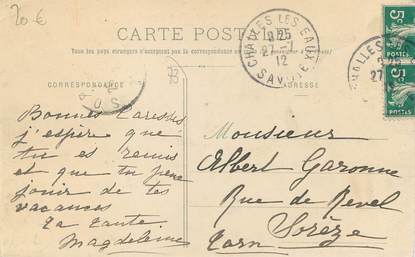 20 €
CARTE POSTALE
Tous les pays étrangers n'acceptent pas la correspondance
CORRESPONDANCE
ADRESSE
73
CHALLES LES EAUX
8 25
27 -7
12
SAVOIE
5c
5c
Bonnes Caresses
j'espère que
tu es remis
et que tu peux
jouir de tes
vacances
Ta tante
Magdeleine
Monsieur
Albert Garonne
Rue de Revel
Sorèze
Tarn